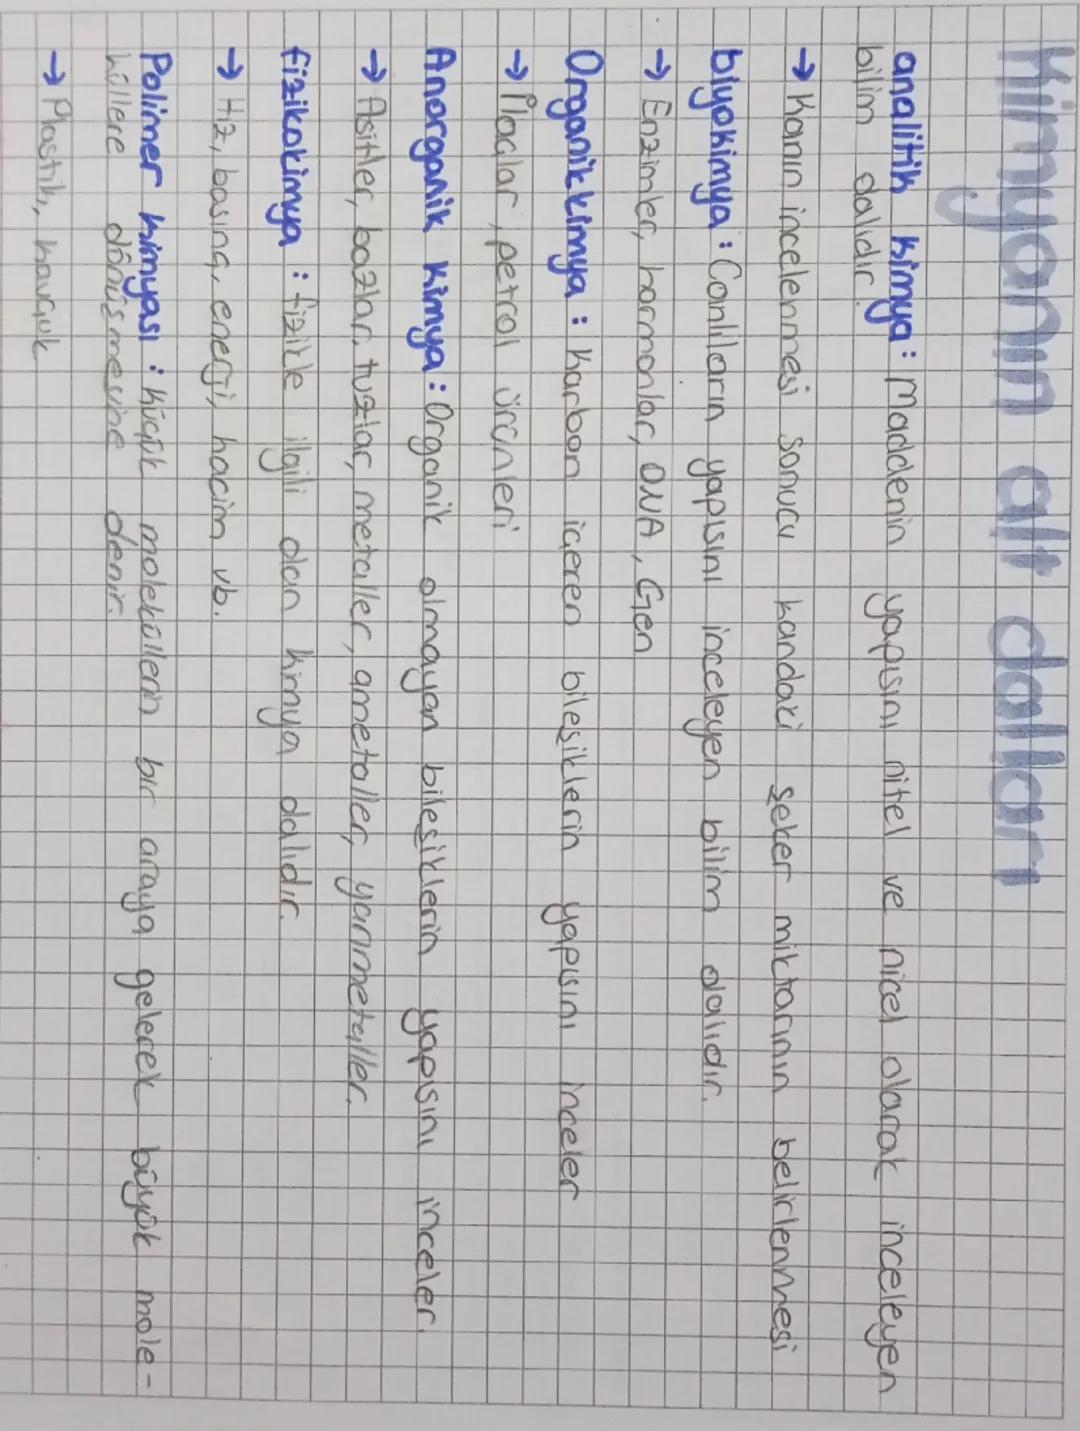 Kimyanın alt dalları
analitik kimya: Maddenin yapısını nitel ve nicel olarak inceleyen
bilim dalıdır.
→ Kanın incelenmesi sonucu kandaki şeker miktarının belirlenmesi
biyokimya: Canlıların yapısını inceleyen bilim dalıdır.
→ Enzimler, hormonlar, DNA, Gen
Organik kimya: Karbon içeren bileşiklerin yapısını inceler
→ İlaçlar, petrol ürünleri
Anorganik kimya: Organik olmayan bileşiklerin yapısını inceler.
→ Asitler, bazlar, tuzlar, metaller, ametaller, yarımetaller.
fizikokimya: fizikle ilgili olan kimya dalıdır.
→ Hız, basınç, enerji, hacim vb.
Polimer kimyası: küçük moleküllerin bir araya gelerek büyük mole-
küllere dönüşmesine denir.
→ Plastik, kauçuk